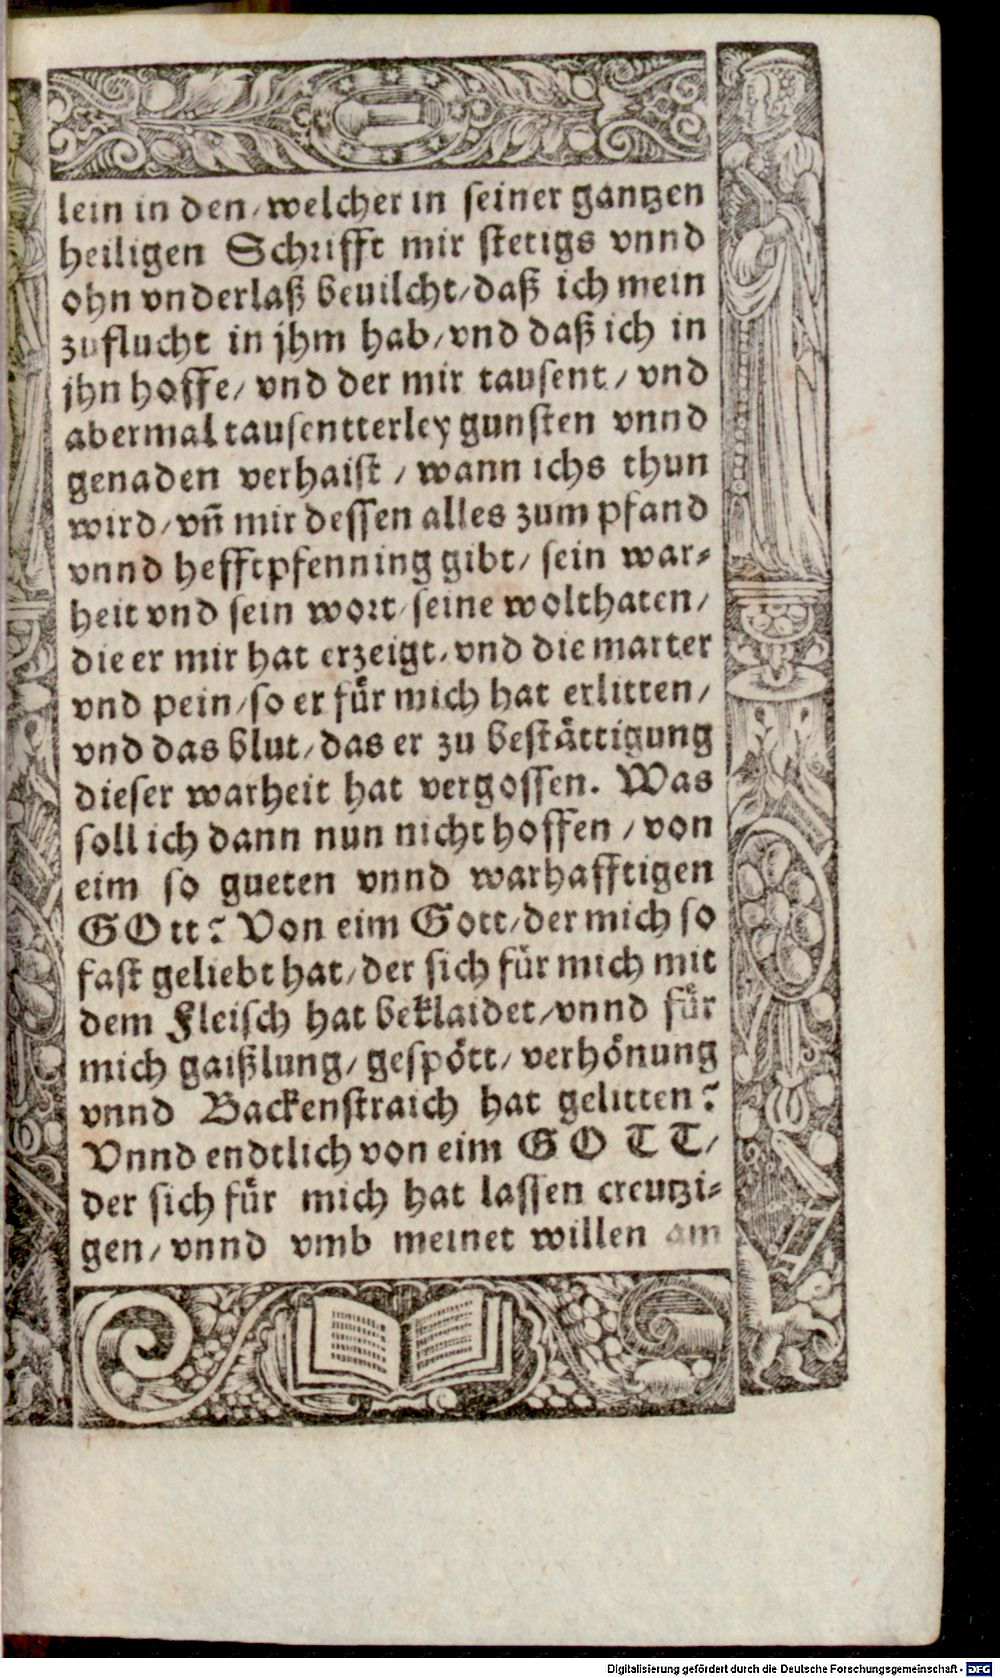 lein in den/welcher in seiner gantzen
heiligen Schrifft mir stetigs vnnd
ohn vnderlaß beuilcht/daß ich mein
zuflucht in jhm hab/vnd daß ich in
jhn hoffe/ vnd der mir tausent/ vnd
abermal tausentterley gunsten vnnd
genaden verhaist / wann ichs thun
wird/vn̄ mir dessen alles zum pfand
vnnd hefftpfenning gibt/ sein war-
heit vnd sein wort/seine wolthaten/
die er mir hat erzeigt/vnd die marter
vnd pein/so er für mich hat erlitten/
vnd das blut/das er zu bestättigung
dieser warheit hat vergossen. Was
soll ich dann nun nicht hoffen / von
eim so gueten vnnd warhafftigen
GOtt? Von eim Gott/der mich so
fast geliebt hat/der sich für mich mit
dem Fleisch hat beklaidet/vnnd für
mich gaißlung/gespött/verhönung
vnnd Backenstraich hat gelitten?
Vnnd endtlich von eim GOTT/
der sich für mich hat lassen creutzi-
gen/vnnd vmb meinet willen am
Digitalisierung gefördert durch die Deutsche Forschungsgemeinschaft - DFG